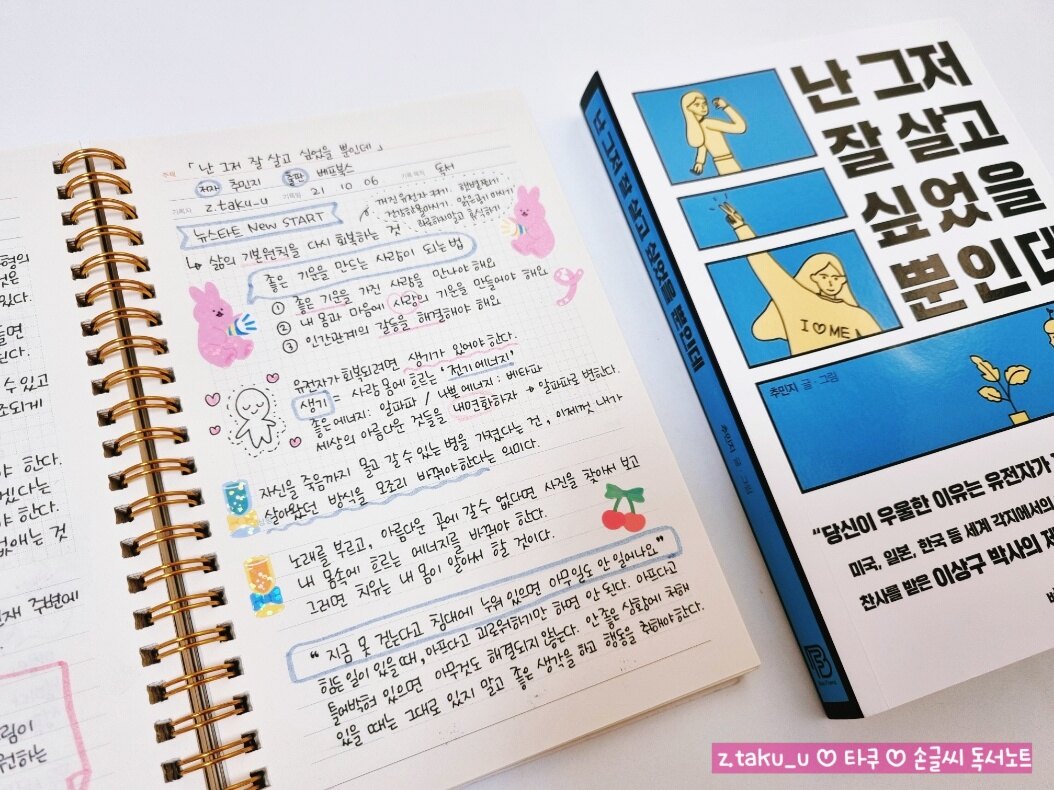 형의
것은
있다.
들면
된다.
수 있고
조되게
야 한다.
겠다는
야 한다.
없애는 것
재 주변에
그림이
원하는
주제 「난 그저 잘 살고 싶었을 뿐인데」
저자 추민지 출판 베프북스
기록자 z.taku_u 기록일 21 10 06 기록목적 독서
뉴스타트 New START
꺼진 유전자 켜기 햇볕쬐기
건강한물마시기 맑은공기 마시기
과로하지않고 휴식하기
↳ 삶의 기본원칙을 다시 회복하는 것
좋은 기운을 만드는 사람이 되는 법
① 좋은 기운을 가진 사람을 만나야 해요
② 내 몸과 마음에 사랑의 기운을 만들어야 해요
③ 인간관계의 갈등을 해결해야 해요
유전자가 회복되려면 생기가 있어야 한다.
생기 = 사람 몸에 흐르는 '전기에너지'
좋은에너지: 알파파 / 나쁜에너지: 베타파
세상의 아름다운 것들을 내면화하자 → 알파파로 변한다.
자신을 죽음까지 몰고 갈 수 있는 병을 가졌다는 건, 이제껏 내가
살아왔던 방식을 모조리 바꿔야한다는 의미다.
노래를 부르고, 아름다운 곳에 갈 수 없다면 사진을 찾아서 보고
내 몸속에 흐르는 에너지를 바꿔야 한다.
그러면 치유는 내 몸이 알아서 할 것이다.
"지금 못 걷는다고 침대에 누워 있으면 아무일도 안 일어나요"
힘든 일이 있을 때, 아프다고 괴로워하기만 하면 안 된다. 아프다고
틀어박혀 있으면 아무것도 해결되지 않는다. 안 좋은 상황에 처해
있을 때는 그대로 있지 말고 좋은 생각을 하고 행동을 취해야한다.
난 그저 잘 살고 싶었을 뿐인데
추민지 글 그림
난 그저
잘 살고
싶었을
뿐인데
I ♡ ME
추민지 글·그림
"당신이 우울한 이유는 유전자가
미국, 일본, 한국 등 세계 각지에서의
찬사를 받은 이상구 박사의 저
z.taku_u ♡ 타쿠 ♡ 손글씨 독서노트